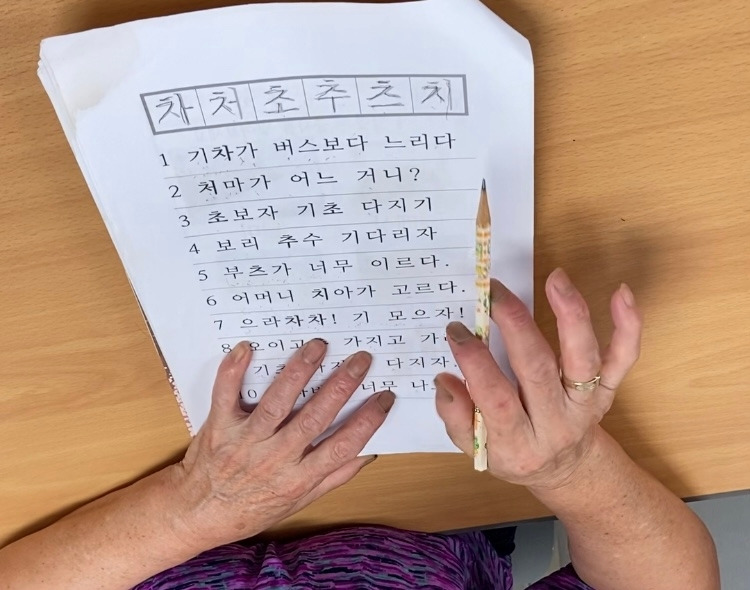 차 처 초 추 츠 치
1 기차가 버스보다 느리다
2 처마가 어느 거니?
3 초보자 기초 다지기
4 보리 추수 기다리자
5 부츠가 너무 이르다.
6 어머니 치아가 고르다.
7 으라차차! 기 모으자!
8 가지고
기초 다지자.
10 너무